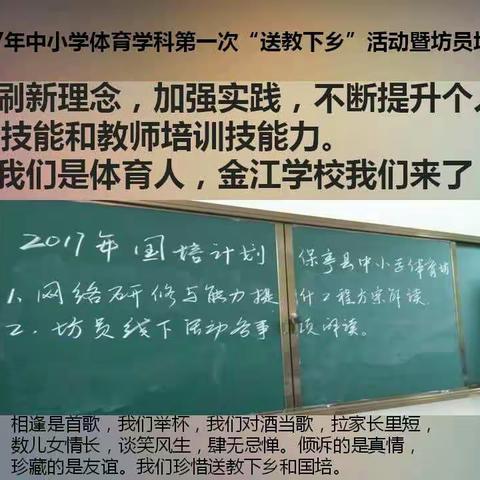 7年中小学体育学科第一次“送教下乡”活动暨坊员培
刷新理念，加强实践，不断提升个人
技能和教师培训技能力。
我们是体育人，金江学校我们来了
2017年国培计划 保亭县中小学体育坊
1、网络研修与能力提升工程方案解读.
2、坊员线下活动各事项解读。
相逢是首歌，我们举杯，我们对酒当歌，拉家长里短，
数儿女情长，谈笑风生，肆无忌惮。倾诉的是真情，
珍藏的是友谊。我们珍惜送教下乡和国培。